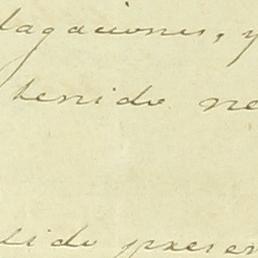 lagaciones, y
tenido ne
lido presen